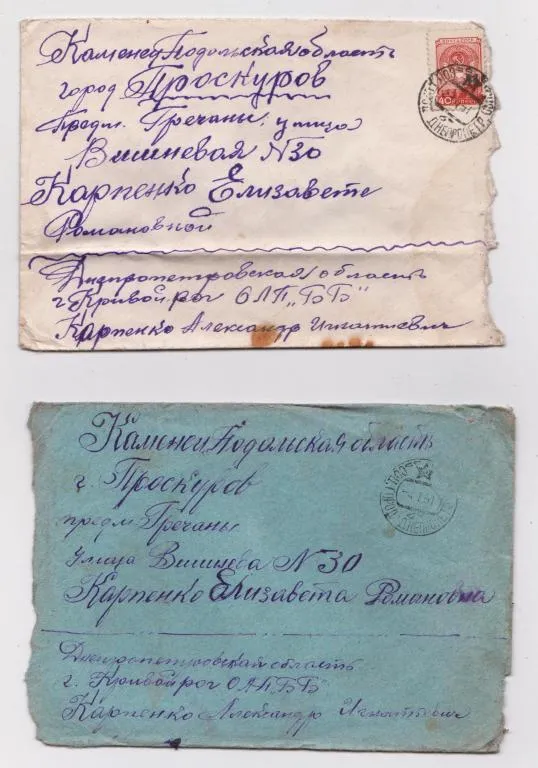 Каменец Подольская область
город Проскуров
Предм. Гречаны. улица
Вишневая N 30
Карпенко Елизавете
Романовной
Днипропетровская область
г. Кривой рог ОЛП „ББ"
Карпенко Александр Игнатиевич
40
Каменец Подольская область
г. Проскуров
предм. Гречаны
улица Вишнева N 30
Карпенко Елизавета Романовна
Днепропетровская область
г. Кривой рог ОЛП „ББ"
Карпенко Александр Игнатиевич